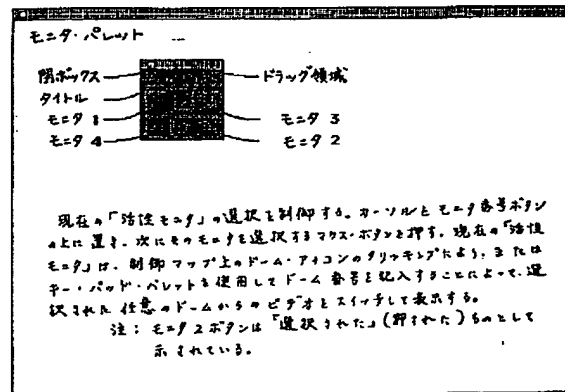 モニタ・パレット
閉ボックス
ドラッグ領域
タイトル
モニタ 1
モニタ 3
モニタ 4
モニタ 2
現在の「活性モニタ」の選択を制御する。カーソルをモニタ番号ボタン
の上に置き、次にそのモニタを選択するマウス・ボタンを押す。現在の「活性
モニタ」は、制御マップ上のドーム・アイコンのクリッキングにより、または
キー・パッド・パレットを使用してドーム番号を記入することによって、選
択された任意のドームからのビデオをスイッチして表示する。
注: モニタ2ボタンは「選択された」(押された)ものとして
示されている。